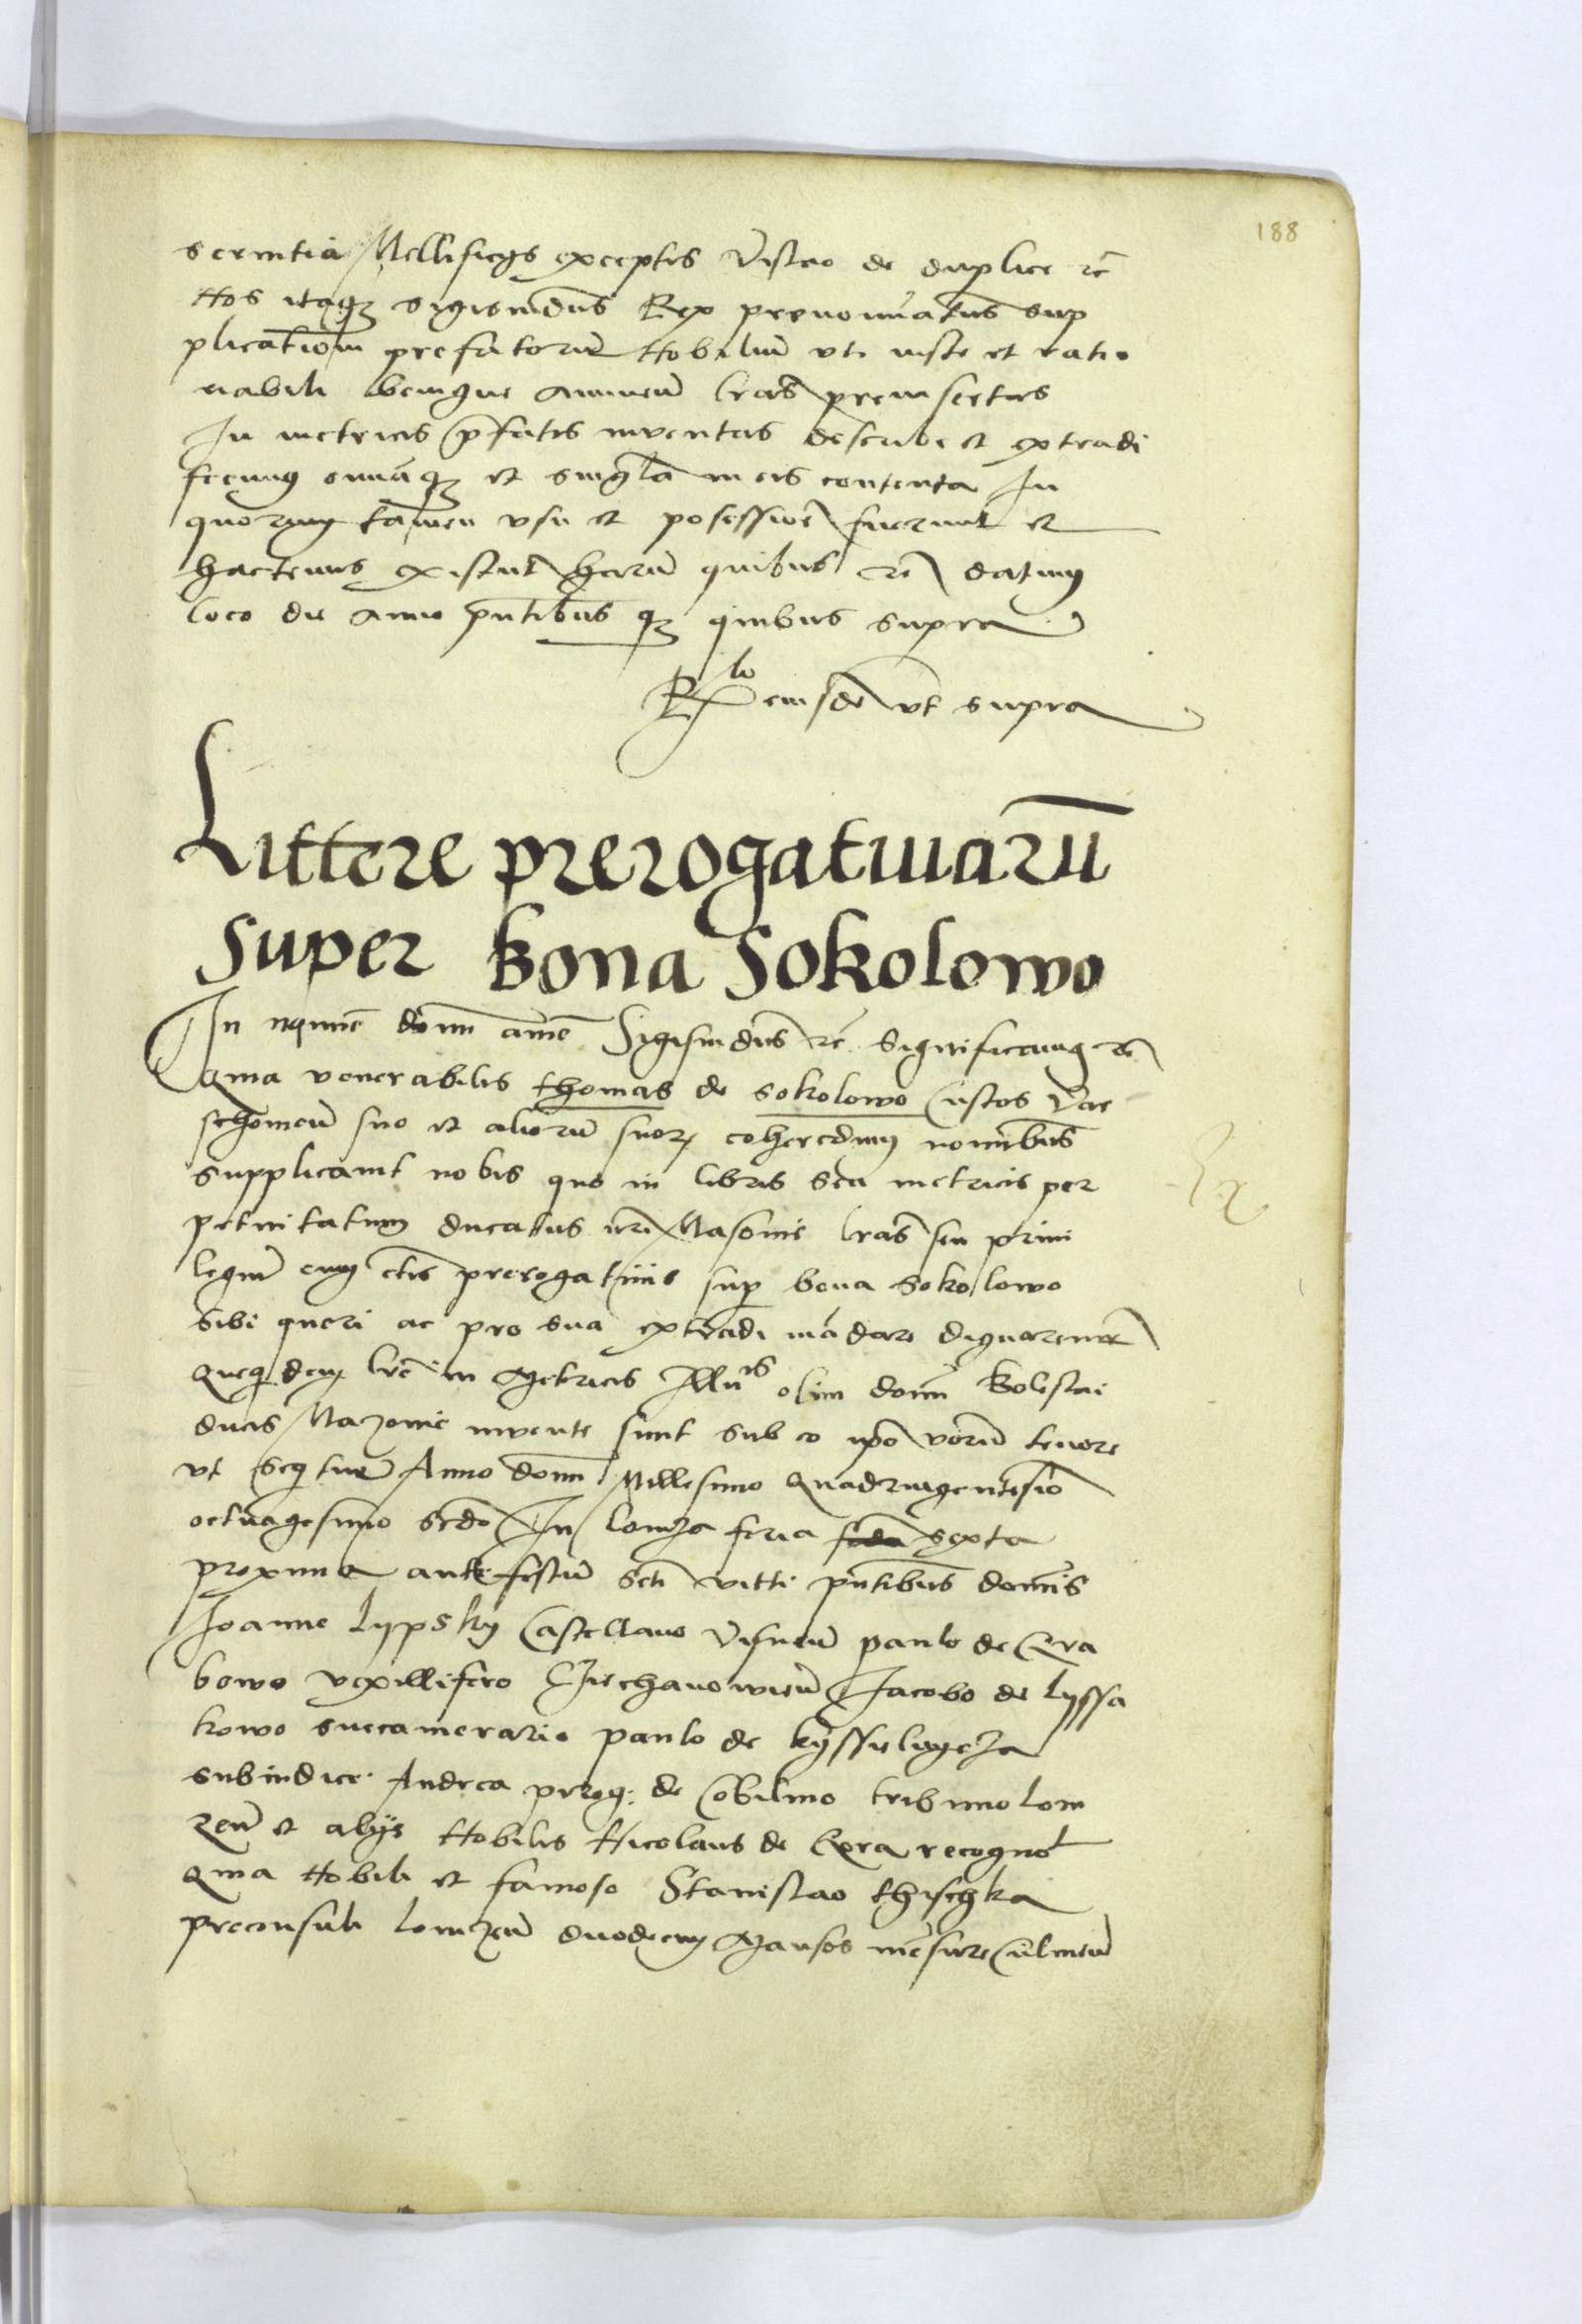 188
scrutia Mellificijs exceptis Vislao de duplice rē
Nos itaq3 sigismūdus Rex prenominatus sup
plicatiom prefatorū Nobiliū vti iuste et ratio
nabili benigne annuen̄ lrās preinsertas
In metricis p̄fatis inventas describi et extradi
fecimus om̄iaq3 et sing̃la in eis contenta In
quorum tamen vsu et posessioē fuerunt et
hactenus existūt harū quibus rē datum
loco die anno pn̄tibus q3 quibus supra
Rlo eiusdē vt supra
Littere prerogatiuarū
super Bona Sokolowo
In nomine domī amē Sigismūdus rē. Significamus rē
Quia venerabilis thomas de Sokolowo Custos Var
schouieñ suo et aliorū suor coheredum nomībus
supplicauit nobis quo in libris seu metricis per
petuitatum ducatus nr̄i Masouie lrās seu priui
legiū cum c̄tis prerogatiuis sup bona Sokolowo
Sibi queri ac pro sua extradi mādare dignaremur
Quequidem lr̄e in Metricis Illūis olim domī Boleslai
ducis Mazouie inuente sunt sub eo ip̄o verū tenore
vt sequitur Anno domī Millesimo Quadringentesīo
octuagesimo sc̄do In Lomza feria sexta
proxima ante festū sc̄ti vitti pn̄tibus domīs
Joanne Lypsky Castellano Visneñ paulo de Gra
bowo vexillifero Cziechanowieñ Jacobo de lyssa
kowo succamerario paulo de
subiudice Andrea de Cobilino tribuno lom
zeñ et alijs Nobilis Nicolaus de recognoīt
Quia Nobili et famoso Stanislao thischka
preconsuli lomzeñ duodecim Mansos mēsure Culmeñ